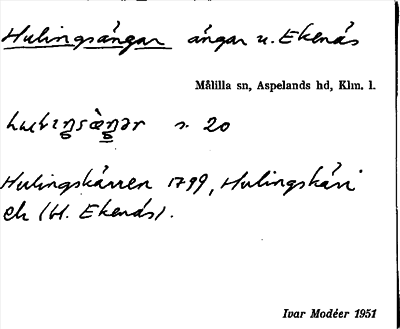 Hulingsängar ängar u. Ekenäs
Målilla sn, Aspelands hd, Klm. l.
s. 20
Hulingskärren 1799, Hulingskärr
(H. Ekenäs).
Ivar Modéer 1951